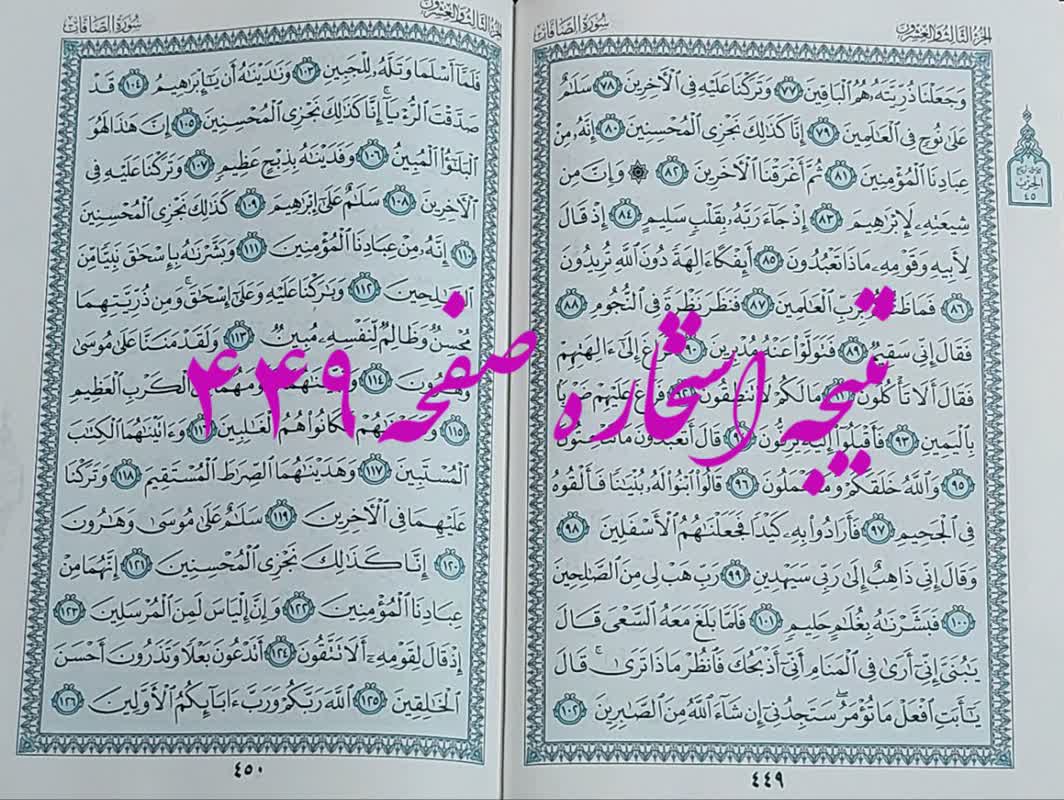 الجزء الثالث والعشرون
سورة الصافات
وَجَعَلْنَا ذُرِّيَّتَهُۥ هُمُ ٱلْبَاقِينَ ٧٧ وَتَرَكْنَا عَلَيْهِ فِى ٱلْـَٔاخِرِينَ ٧٨ سَلَـٰمٌ
عَلَىٰ نُوحٍ فِى ٱلْعَـٰلَمِينَ ٧٩ إِنَّا كَذَٰلِكَ نَجْزِى ٱلْمُحْسِنِينَ ٨٠ إِنَّهُۥ مِنْ
عِبَادِنَا ٱلْمُؤْمِنِينَ ٨١ ثُمَّ أَغْرَقْنَا ٱلْـَٔاخَرِينَ ٨٢ ۞ وَإِنَّ مِن
شِيعَتِهِۦ لَإِبْرَٰهِيمَ ٨٣ إِذْ جَآءَ رَبَّهُۥ بِقَلْبٍ سَلِيمٍ ٨٤ إِذْ قَالَ
لِأَبِيهِ وَقَوْمِهِۦ مَاذَا تَعْبُدُونَ ٨٥ أَئِفْكًا ءَالِهَةً دُونَ ٱللَّهِ تُرِيدُونَ
٨٦ فَمَا بِرَبِّ ٱلْعَـٰلَمِينَ ٨٧ فَنَظَرَ نَظْرَةً فِى ٱلنُّجُومِ ٨٨
فَقَالَ إِنِّى سَقِيمٌ ٨٩ فَتَوَلَّوْا۟ عَنْهُ مُدْبِرِينَ ٩٠ إِلَىٰٓ ءَالِهَتِهِمْ
فَقَالَ أَلَا تَأْكُلُونَ مَا لَكُمْ لَا تَنطِقُونَ عَلَيْهِمْ ضَرْبًۢا
بِٱلْيَمِينِ ٩٣ فَأَقْبَلُوٓا۟ إِلَيْهِ يَزِفُّونَ قَالَ أَتَعْبُدُونَ مَا تَنْحِتُونَ
٩٥ وَٱللَّهُ خَلَقَكُمْ وَمَا تَعْمَلُونَ ٩٦ قَالُوا۟ ٱبْنُوا۟ لَهُۥ بُنْيَـٰنًا فَأَلْقُوهُ
فِى ٱلْجَحِيمِ ٩٧ فَأَرَادُوا۟ بِهِۦ كَيْدًا فَجَعَلْنَـٰهُمُ ٱلْأَسْفَلِينَ ٩٨
وَقَالَ إِنِّى ذَاهِبٌ إِلَىٰ رَبِّى سَيَهْدِينِ ٩٩ رَبِّ هَبْ لِى مِنَ ٱلصَّـٰلِحِينَ
١٠٠ فَبَشَّرْنَـٰهُ بِغُلَـٰمٍ حَلِيمٍ ١٠١ فَلَمَّا بَلَغَ مَعَهُ ٱلسَّعْىَ قَالَ
يَـٰبُنَىَّ إِنِّىٓ أَرَىٰ فِى ٱلْمَنَامِ أَنِّىٓ أَذْبَحُكَ فَٱنظُرْ مَاذَا تَرَىٰ ۚ قَالَ
يَـٰٓأَبَتِ ٱفْعَلْ مَا تُؤْمَرُ ۖ سَتَجِدُنِىٓ إِن شَآءَ ٱللَّهُ مِنَ ٱلصَّـٰبِرِينَ ١٠٢
٤٤٩
الحزب
٤٥
الجزء الثالث والعشرون
سورة الصافات
فَلَمَّآ أَسْلَمَا وَتَلَّهُۥ لِلْجَبِينِ ١٠٣ وَنَـٰدَيْنَـٰهُ أَن يَـٰٓإِبْرَٰهِيمُ ١٠٤ قَدْ
صَدَّقْتَ ٱلرُّءْيَآ ۚ إِنَّا كَذَٰلِكَ نَجْزِى ٱلْمُحْسِنِينَ ١٠٥ إِنَّ هَـٰذَا لَهُوَ
ٱلْبَلَـٰٓؤُا۟ ٱلْمُبِينُ ١٠٦ وَفَدَيْنَـٰهُ بِذِبْحٍ عَظِيمٍ ١٠٧ وَتَرَكْنَا عَلَيْهِ فِى
ٱلْـَٔاخِرِينَ ١٠٨ سَلَـٰمٌ عَلَىٰٓ إِبْرَٰهِيمَ ١٠٩ كَذَٰلِكَ نَجْزِى ٱلْمُحْسِنِينَ
١١٠ إِنَّهُۥ مِنْ عِبَادِنَا ٱلْمُؤْمِنِينَ ١١١ وَبَشَّرْنَـٰهُ بِإِسْحَـٰقَ نَبِيًّا مِّنَ
ٱلصَّـٰلِحِينَ ١١٢ وَبَـٰرَكْنَا عَلَيْهِ وَعَلَىٰٓ إِسْحَـٰقَ ۚ وَمِن ذُرِّيَّتِهِمَا
مُحْسِنٌ وَظَالِمٌ لِّنَفْسِهِۦ مُبِينٌ ١١٣ وَلَقَدْ مَنَنَّا عَلَىٰ مُوسَىٰ
وَهَـٰرُونَ ١١٤ ٱلْكَرْبِ ٱلْعَظِيمِ
١١٥ فَكَانُوا۟ هُمُ ٱلْغَـٰلِبِينَ ١١٦ وَءَاتَيْنَـٰهُمَا ٱلْكِتَـٰبَ
ٱلْمُسْتَبِينَ ١١٧ وَهَدَيْنَـٰهُمَا ٱلصِّرَٰطَ ٱلْمُسْتَقِيمَ ١١٨ وَتَرَكْنَا
عَلَيْهِمَا فِى ٱلْـَٔاخِرِينَ ١١٩ سَلَـٰمٌ عَلَىٰ مُوسَىٰ وَهَـٰرُونَ
١٢٠ إِنَّا كَذَٰلِكَ نَجْزِى ٱلْمُحْسِنِينَ ١٢١ إِنَّهُمَا مِنْ
عِبَادِنَا ٱلْمُؤْمِنِينَ ١٢٢ وَإِنَّ إِلْيَاسَ لَمِنَ ٱلْمُرْسَلِينَ ١٢٣
إِذْ قَالَ لِقَوْمِهِۦٓ أَلَا تَتَّقُونَ ١٢٤ أَتَدْعُونَ بَعْلًا وَتَذَرُونَ أَحْسَنَ
ٱلْخَـٰلِقِينَ ١٢٥ ٱللَّهَ رَبَّكُمْ وَرَبَّ ءَابَآئِكُمُ ٱلْأَوَّلِينَ ١٢٦
٤٥٠
نتیجه استخاره صفحه ۴۴۹